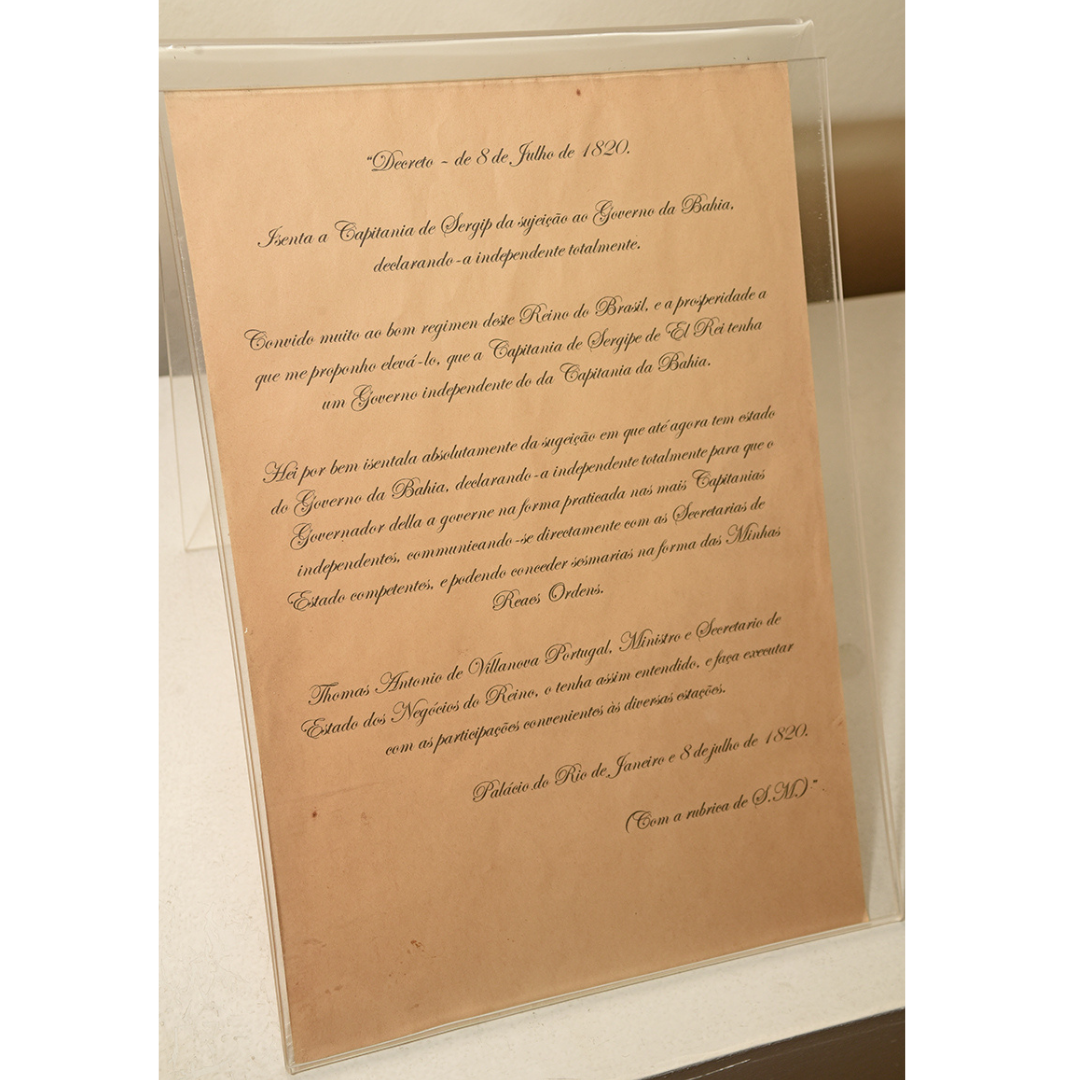 “Decreto ~ de 8 de Julho de 1820.
Isenta a Capitania de Sergip da sujeição ao Governo da Bahia,
declarando-a independente totalmente.
Convido muito ao bom regimen deste Reino do Brasil, e a prosperidade a
que me proponho elevá-lo, que a Capitania de Sergipe de El Rei tenha
um Governo independente do da Capitania da Bahia.
Hei por bem isentala absolutamente da sugeição em que até agora tem estado
do Governo da Bahia, declarando-a independente totalmente para que o
Governador della a governe na forma praticada nas mais Capitanias
independentes, communicando-se directamente com as Secretarias de
Estado competentes, e podendo conceder sesmarias na forma das Minhas
Reaes Ordens.
Thomas Antonio de Villanova Portugal, Ministro e Secretario de
Estado dos Negócios do Reino, o tenha assim entendido, e faça executar
com as participações convenientes às diversas estações.
Palácio do Rio de Janeiro e 8 de julho de 1820.
(Com a rubrica de S.M.)”